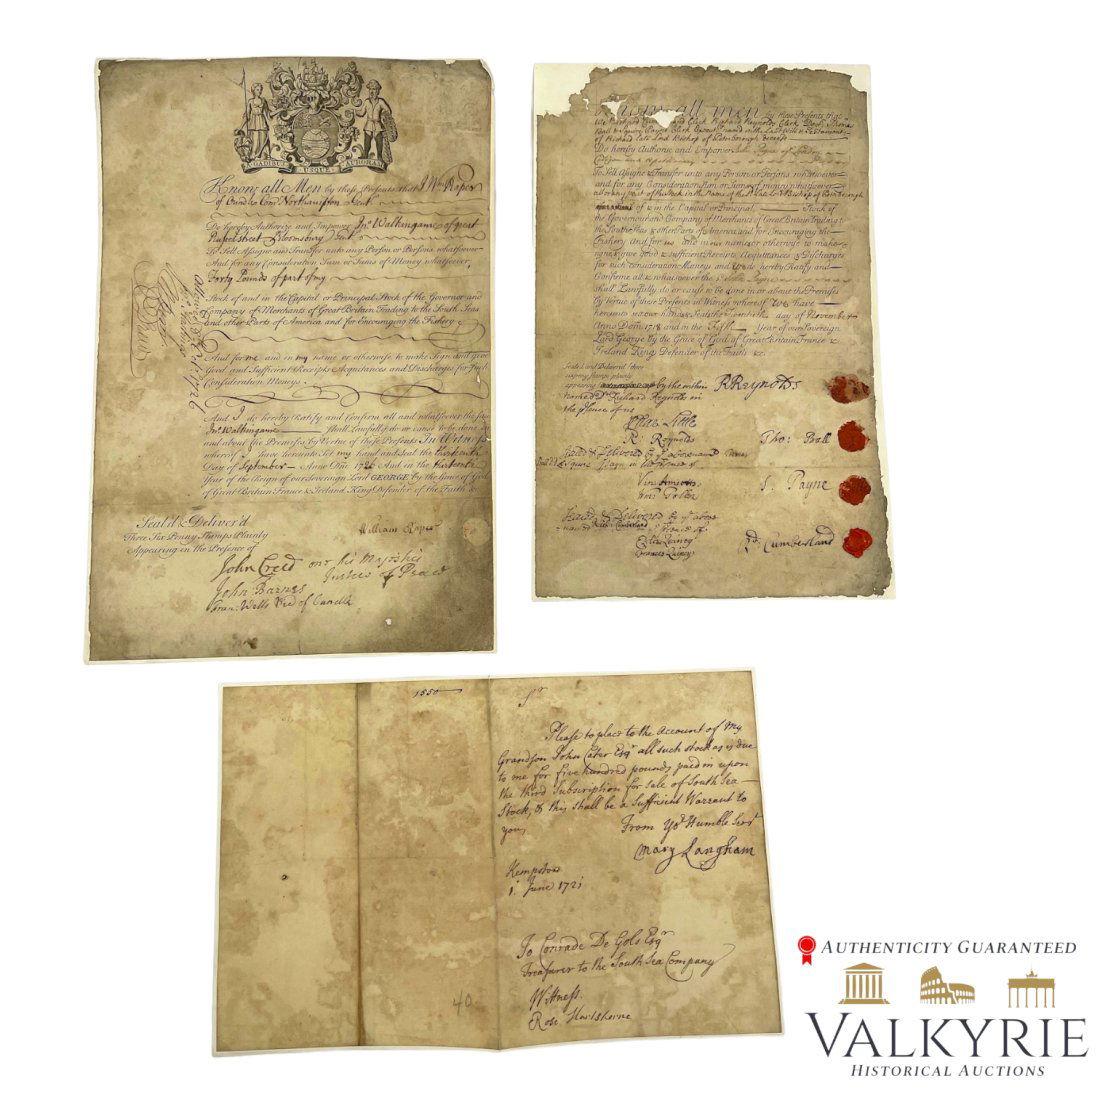 A GADIBUS USQUE AURORAM
Know all Men by these Presents that I Wm Raper
of Oundle Com Northampton Gent
Do hereby Authorize and Impower Jno. Walkingame of great
Russel street Bloomsbury Gent
To Sell Assigne and Transfer unto any Person or Persons whatsoever
And for any Consideration Sum or Sums of Money whatsoever,
Forty Pounds of part of my
Stock of and in the Capital or Principal Stock of the Governor and
Company of Merchants of Great Britain Trading to the South Seas
and other Parts of America and for Encouraging the Fishery
And for me and in my name or otherwise to make Sign and give
Good and Sufficient Receipts Acquittances and Discharges for such
Consideration Moneys
And I do hereby Ratify and Confirm all and whatsoever the said
Jno. Walkingame shall Lawfully do or cause to be done in
and about the Premisses by Virtue of these Presents In Witness
whereof I have hereunto set my hand and seal the thirteenth
Day of September Anno Dni: 1726 And in the thirteenth
Year of the Reign of our Sovereign Lord GEORGE by the Grace of God
of Great Britain France & Ireland King Defender of the Faith &c
Seal'd & Deliver'd
Three Six Penny Stamps Plainly
Appearing in the Presence of
William Raper
John Creed one of his Majesties
Justices of Peace
John Barnes
Fran: Wells
1726
Know all men by these Presents that
Richard Reynolds Clerk
Squire Payne Clerk
of Richard late Lord Bishop of Peterborough deceased
Do hereby Authorize and Empower
To Sell Assigne & Transfer unto any Person or Persons whatsoever
and for any Consideration Sum or Sums of money whatsoever
of & in the Capital or Principal Stock of
the Governour and Company of Merchants of Great Britain Trading to
the South Seas & other Parts of America and for Encouraging the
Fishery And for us and in our names or otherwise to make
signe & give good & sufficient Receipts Acquittances & Discharges
for such consideration Moneys and We do hereby Ratify and
Confirme all & whatsoever the said
Shall Lawfully do or cause to be done in or about the Premisses
by virtue of these Presents in Witness whereof We have
hereunto set our hands & Seals the Twentieth day of November
Anno Dom 1718 and in the Fifth Year of our Sovereign
Lord George by the Grace of God of Great Britain France &
Ireland King Defender of the Faith &c.
Sealed and Delivered three
sixpenny stamps plainly
appearing by the within
named Richard Reynolds in
the presence of us
R Reynolds
R. Reynolds
Tho: Ball
S. Payne
Rd. Cumberland
1550
Sr
Please to place to the Account of my
Grandson John Cater Esqr all such stock as is due
to me for five hundred pounds paid in upon
the third Subscription for sale of South Sea
Stock, & this shall be a Sufficient Warrant to
you,
From yor Humble Servt
Mary Langham
Kempston
1. June 1721
To Conrade De Gols Esqr
Treasurer to the South Sea Company
Wittness.
Rose Hartshorne
40
AUTHENTICITY GUARANTEED
VALKYRIE
HISTORICAL AUCTIONS